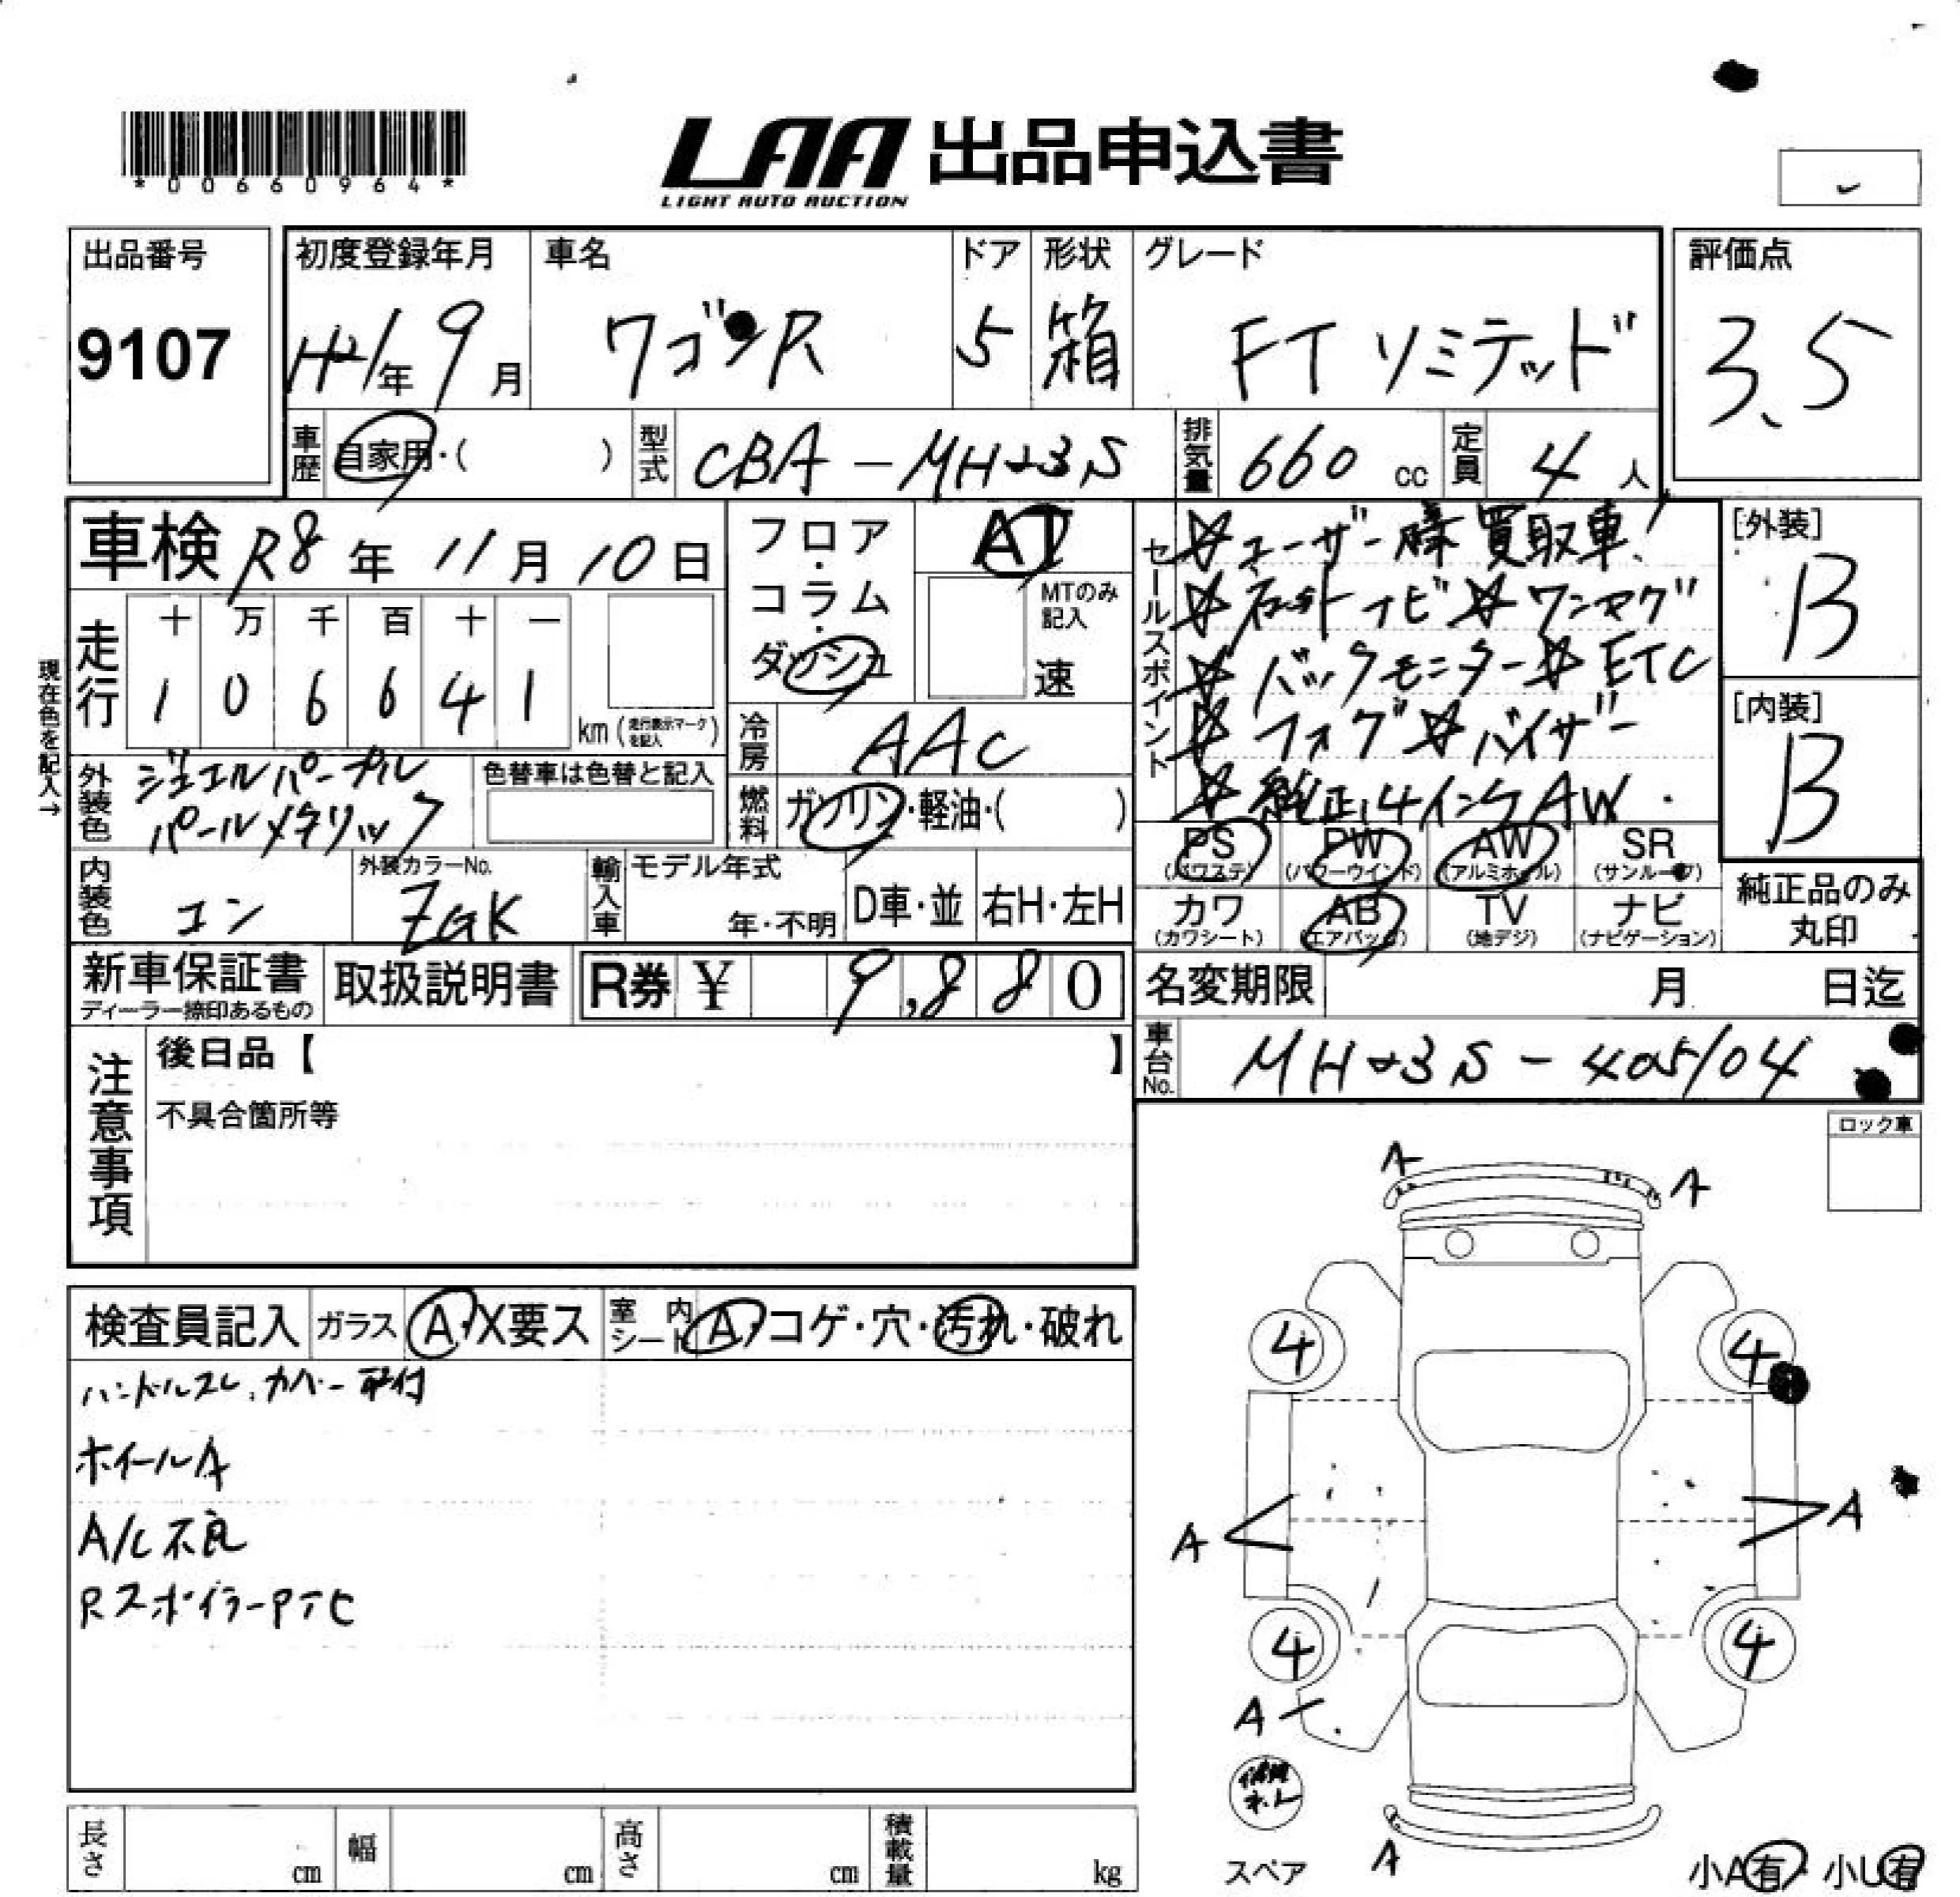 *00660964*
LAA 出品申込書
LIGHT AUTO AUCTION
出品番号 9107
初度登録年月 H21年 9月
車名 ワゴンR
ドア 5
形状 箱
グレード FTリミテッド
評価点 3.5
車歴 自家用・( )
型式 CBA-MH23S
排気量 660 cc
定員 4人
車検 R8年 11月 10日
フロア・コラム・ダッシュ
AT
MTのみ記入
速
走行 十 万 千 百 十 一
1 0 6 6 4 1 km (走行表示マークを記入)
現在色を記入→
冷房 AAC
外装色 ジュエルパープルパールメタリック
色替車は色替と記入
燃料 ガソリン・軽油・( )
内装色 コン
外装カラーNo. ZGK
輸入車 モデル年式 年・不明
D車・並 右H・左H
セールスポイント
☆ユーザー様買取車!
ナビ ☆ワンオフ
☆バックモニター ☆ETC
☆フォグ ☆バイザー
☆純正14インチAW.
[外装] B
[内装] B
PS (パワステ) PW (パワーウインド) AW (アルミホイル) SR (サンルーフ)
カワ (カワシート) AB (エアバッグ) TV (地デジ) ナビ (ナビゲーション)
純正品のみ丸印
新車保証書 ディーラー捺印あるもの
取扱説明書
R券 ¥ 9,880
名変期限 月 日迄
車台No. MH23S-405104
注意事項
後日品【 】
不具合箇所等
ロック車
検査員記入 ガラス A・X要ス 室内シート A・コゲ・穴・汚れ・破れ
ハンドルスレ、カバー取付
ホイールA
A/C不良
RスポイラーPテヒ
A A
4 4
A A
4 4
A
A
スペア
小A有・小U有
長さ cm 幅 cm 高さ cm 積載量 kg